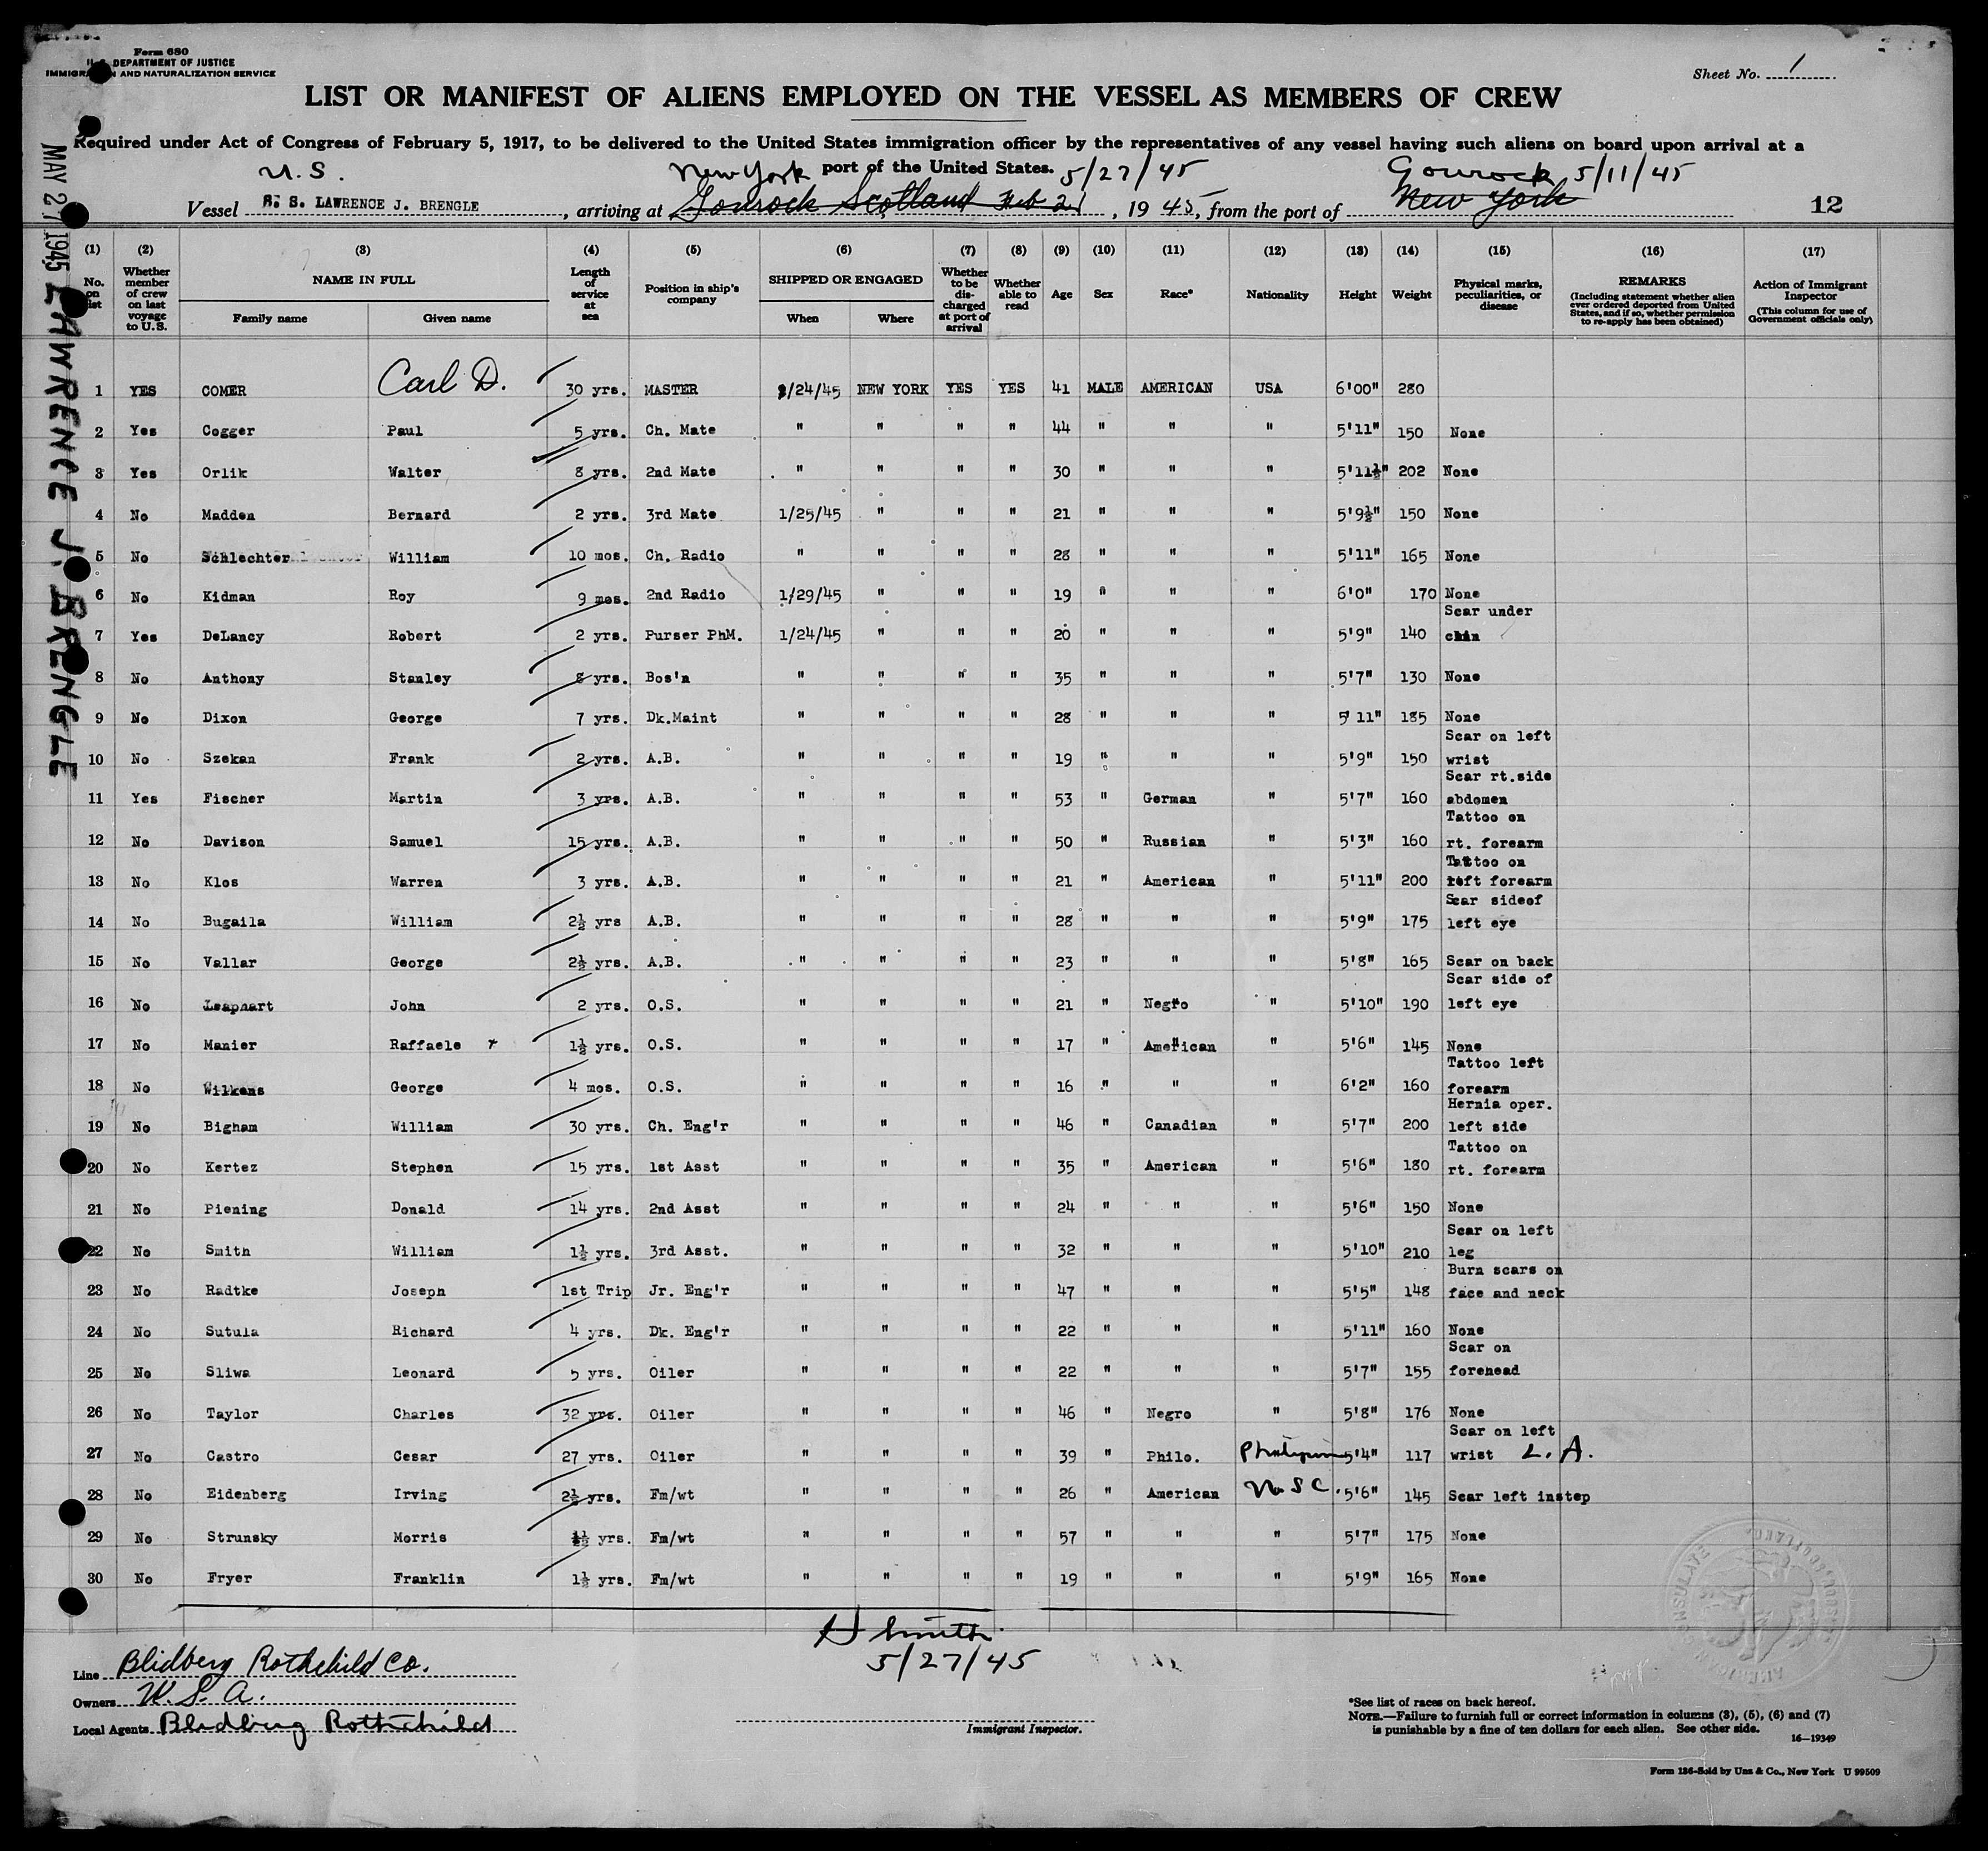 Form 680
U. S. DEPARTMENT OF JUSTICE
IMMIGRATION AND NATURALIZATION SERVICE
Sheet No. 1
LIST OR MANIFEST OF ALIENS EMPLOYED ON THE VESSEL AS MEMBERS OF CREW
Required under Act of Congress of February 5, 1917, to be delivered to the United States immigration officer by the representatives of any vessel having such aliens on board upon arrival at a
port of the United States.
U.S. New York 5/27/45 Gourock 5/11/45
Vessel S. S. LAWRENCE J. BRENGLE, arriving at Gourock Scotland Feb 21, 1945, from the port of New York 12
MAY 27 1945 LAWRENCE J. BRENGLE
(1) (2) (3) (4) (5) (6) (7) (8) (9) (10) (11) (12) (13) (14) (15) (16) (17)
No. on list
Whether member of crew on last voyage to U.S.
NAME IN FULL
Family name Given name
Length of service at sea
Position in ship's company
SHIPPED OR ENGAGED
When Where
Whether to be discharged at port of arrival
Whether able to read
Age
Sex
Race*
Nationality
Height
Weight
Physical marks, peculiarities, or disease
REMARKS
(Including statement whether alien ever ordered deported from United States, and if so, whether permission to re-apply has been obtained)
Action of Immigrant Inspector
(This column for use of Government officials only)
1 YES COMER Carl D. 30 yrs. MASTER /24/45 NEW YORK YES YES 41 MALE AMERICAN USA 6'00" 280
2 Yes Cogger Paul 5 yrs. Ch. Mate " " " " 44 " " " 5'11" 150 None
3 Yes Orlik Walter 8 yrs. 2nd Mate " " " " 30 " " " 5'11½" 202 None
4 No Madden Bernard 2 yrs. 3rd Mate 1/25/45 " " " 21 " " " 5'9½" 150 None
5 No Schlechter William 10 mos. Ch. Radio " " " " 28 " " " 5'11" 165 None
6 No Kidman Roy 9 mos. 2nd Radio 1/29/45 " " " 19 " " " 6'0" 170 None
7 Yes DeLancy Robert 2 yrs. Purser PhM. 1/24/45 " " " 20 " " " 5'9" 140 Scar under chin
8 No Anthony Stanley 8 yrs. Bos'n " " " " 35 " " " 5'7" 130 None
9 No Dixon George 7 yrs. Dk.Maint " " " " 28 " " " 5'11" 185 None
10 No Szekan Frank 2 yrs. A.B. " " " " 19 " " " 5'9" 150 Scar on left wrist
11 Yes Fischer Martin 3 yrs. A.B. " " " " 53 " German " 5'7" 160 Scar rt.side abdomen
12 No Davison Samuel 15 yrs. A.B. " " " " 50 " Russian " 5'3" 160 Tattoo on rt. forearm
13 No Klos Warren 3 yrs. A.B. " " " " 21 " American " 5'11" 200 Tattoo on left forearm
14 No Bugaila William 2½ yrs A.B. " " " " 28 " " " 5'9" 175 Scar sideof left eye
15 No Vallar George 2½ yrs. A.B. " " " " 23 " " " 5'8" 165 Scar on back
16 No Leaphart John 2 yrs. O.S. " " " " 21 " Negro " 5'10" 190 Scar side of left eye
17 No Manier Raffaele 1½ yrs. O.S. " " " " 17 " American " 5'6" 145 None
18 No Wilkens George 4 mos. O.S. " " " " 16 " " " 6'2" 160 Tattoo left forearm
19 No Bigham William 30 yrs. Ch. Eng'r " " " " 46 " Canadian " 5'7" 200 Hernia oper. left side
20 No Kertez Stephen 15 yrs. 1st Asst " " " " 35 " American " 5'6" 180 Tattoo on rt. forearm
21 No Piening Donald 14 yrs. 2nd Asst " " " " 24 " " " 5'6" 150 None
22 No Smith William 1½ yrs. 3rd Asst. " " " " 32 " " " 5'10" 210 Scar on left leg
23 No Radtke Joseph 1st Trip Jr. Eng'r " " " " 47 " " " 5'5" 148 Burn scars on face and neck
24 No Sutula Richard 4 yrs. Dk. Eng'r " " " " 22 " " " 5'11" 160 None
25 No Sliwa Leonard 5 yrs. Oiler " " " " 22 " " " 5'7" 155 Scar on forehead
26 No Taylor Charles 32 yrs. Oiler " " " " 46 " Negro " 5'8" 176 None
27 No Castro Cesar 27 yrs. Oiler " " " " 39 " Philo. 5'4" 117 Scar on left wrist L. A.
28 No Eidenberg Irving 2½ yrs. Fm/wt " " " " 26 " American 5'6" 145 Scar left instep
29 No Strunsky Morris yrs. Fm/wt " " " " 57 " " " 5'7" 175 None
30 No Fryer Franklin 1½ yrs. Fm/wt " " " " 19 " " " 5'9" 165 None
H Smith
5/27/45
Line Blidberg Rothchild Co.
Owners W. S. A.
Local Agents Blidberg Rothchild
Immigrant Inspector.
AMERICAN CONSULATE
*See list of races on back hereof.
NOTE.—Failure to furnish full or correct information in columns (3), (5), (6) and (7)
is punishable by a fine of ten dollars for each alien. See other side.
16—19349
Form 136-Sold by Unz & Co., New York U 99509